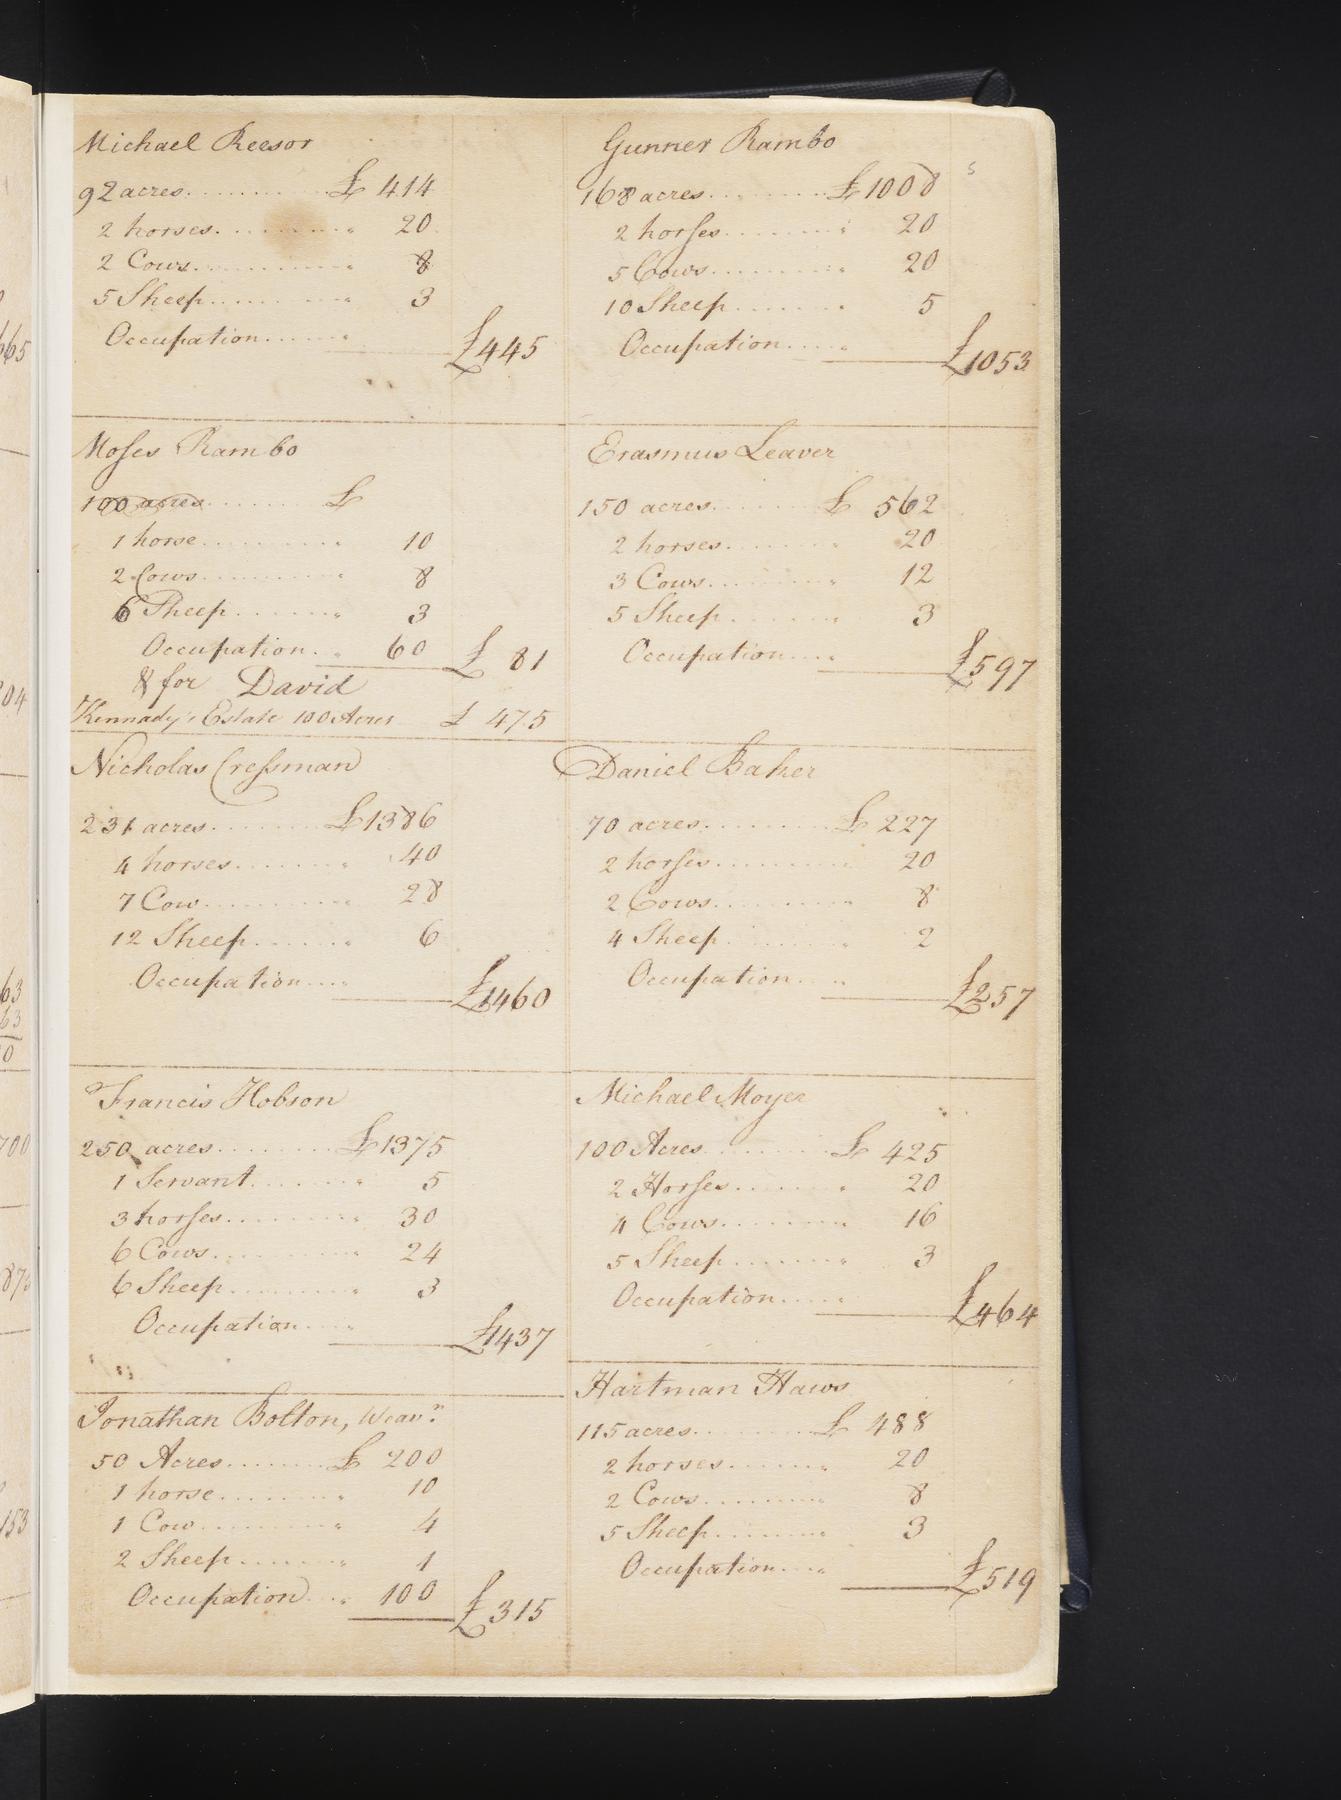 Michael Reesor
92 acres . . . . . . . . . . £ 414
2 horses . . . . . . . . . " 20
2 Cows . . . . . . . . . . " 8
5 Sheep . . . . . . . . . " 3
Occupation . . . . . . "
£445
Moses Rambo
100 acres . . . . . . . . £
1 horse . . . . . . . . . " 10
2 Cows . . . . . . . . . " 8
6 Sheep . . . . . . . " 3
Occupation . . " 60 £ 81
& for David
Kennady's Estate 100 Acres £ 475
Nicholas Cressman
231 acres . . . . . . . . £1386
4 horses . . . . . . . " 40
7 Cow . . . . . . . . . " 28
12 Sheep . . . . . . " 6
Occupation . . . "
£1460
Francis Hobson
250 acres . . . . . . . . £1375
1 Servant . . . . . . . " 5
3 horses . . . . . . . . " 30
6 Cows . . . . . . . . . " 24
6 Sheep . . . . . . . . " 3
Occupation . . . "
£1437
Jonathan Bolton, Weavr.
50 Acres . . . . . . . £ 200
1 horse . . . . . . . . " 10
1 Cow . . . . . . . . . " 4
2 Sheep . . . . . . . " 1
Occupation . . . " 100 £315
Gunner Rambo
168 acres . . . . . . . . £1008
2 horses . . . . . . . . " 20
5 Cows . . . . . . . . . " 20
10 Sheep . . . . . . . " 5
Occupation . . . . "
£1053
Erasmus Leaver
150 acres . . . . . . . £ 562
2 horses . . . . . . . " 20
3 Cows . . . . . . . . " 12
5 Sheep . . . . . . . " 3
Occupation . . . . "
£597
Daniel Baker
70 acres . . . . . . . . £ 227
2 horses . . . . . . . . " 20
2 Cows . . . . . . . . . " 8
4 Sheep . . . . . . . " 2
Occupation . . . "
£257
Michael Moyer
100 Acres . . . . . . . £ 425
2 Horses . . . . . . . " 20
4 Cows . . . . . . . . " 16
5 Sheep . . . . . . . " 3
Occupation . . . . "
£464
Hartman Haws
115 acres . . . . . . . . £ 488
2 horses . . . . . . . " 20
2 Cows . . . . . . . . " 8
5 Sheep . . . . . . . " 3
Occupation . . . "
£519